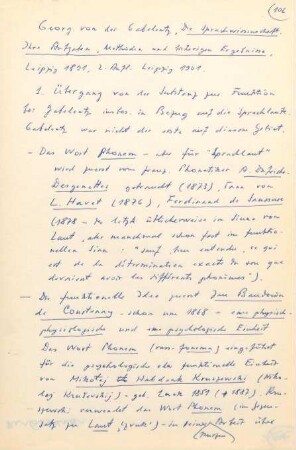 (106
Georg von der Gabelentz, Die Sprachwissenschaft.
Ihre Aufgaben, Methoden und bisherigen Ergebnisse,
Leipzig 1891, 2. Aufl. Leipzig 1901.
1. Übergang von der Substanz zur Funktion
bei Gabelentz insbes. in Bezug auf die Sprachlaute.
Gabelentz war nicht der erste auf diesem Gebiet.
- Das Wort Phonem - aber für "Sprachlaut"
wird zuerst vom franz. Phonetiker A. Dufriche-
Desgenettes gebraucht (1873), dann von
L. Havet (1876), Ferdinand de Saussure
(1878 - die letzte üblicherweise im Sinne von
Laut, aber manchmal schon fast im funktio-
nellen Sinn -
de la détermination exacte du son que
devraient avoir les différents phonèmes").
- Die funktionelle Idee zuerst Jan Baudouin
de Courtenay - schon um 1868 - eine physisch-
physiologische und eine psychologische Einheit
Das Wort Phonem (russ. fonema) eingeführt
für die psychologische oder funktionelle Einheit
von Mikołaj Habdank Kruszewski (Niko-
laj Kruševskij) - geb. Luck 1851 († 1887). Kru-
szewski verwendet das Wort Phonem (im Gegen-
satz zu Laut, "zvuk") - in seiner Arbeit über